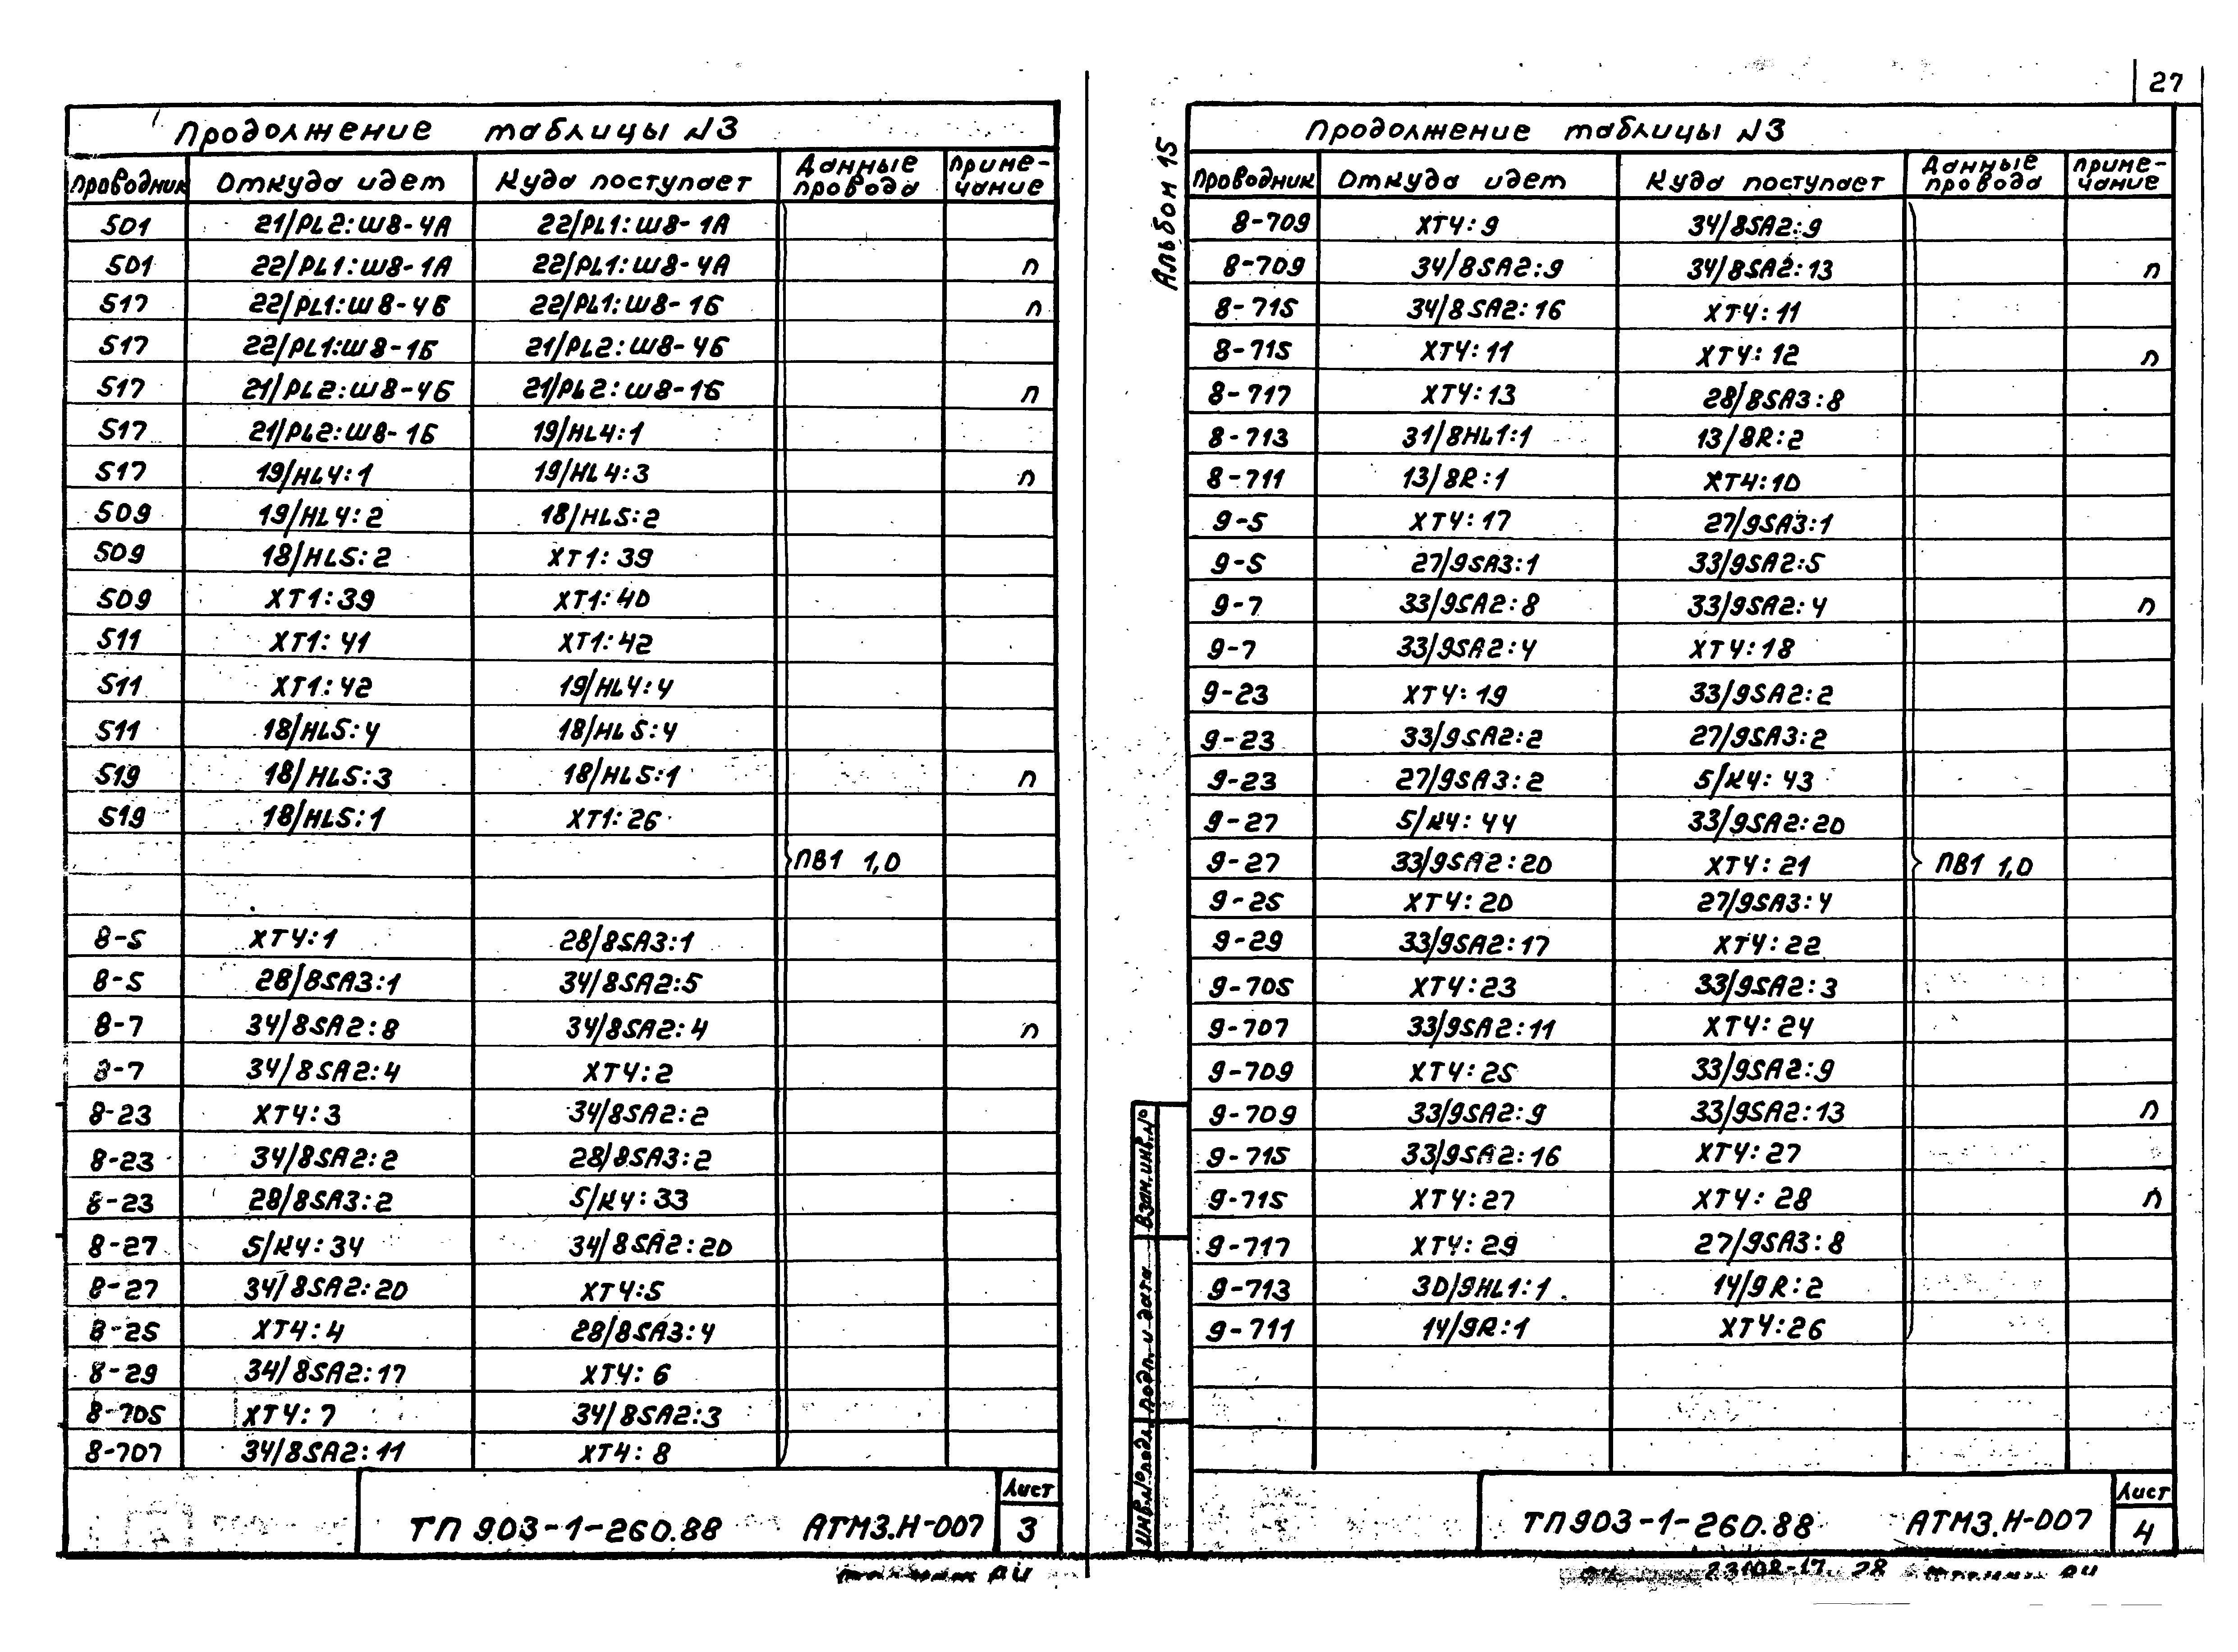 27
Продолжение таблицы N3
Проводник Откуда идет Куда поступает Данные провода Приме-чание
501 21/PL2:Ш8-4А 22/PL1:Ш8-1А
501 22/PL1:Ш8-1А 22/PL1:Ш8-4А п
517 22/PL1:Ш8-4Б 22/PL1:Ш8-1Б п
517 22/PL1:Ш8-1Б 21/PL2:Ш8-4Б
517 21/PL2:Ш8-4Б 21/PL2:Ш8-1Б п
517 21/PL2:Ш8-1Б 19/HL4:1
517 19/HL4:1 19/HL4:3 п
509 19/HL4:2 18/HL5:2
509 18/HL5:2 XT1:39
509 XT1:39 XT1:40
511 XT1:41 XT1:42
511 XT1:42 19/HL4:4
511 18/HL5:4 18/HL5:4
519 18/HL5:3 18/HL5:1 п
519 18/HL5:1 XT1:26
ПВ1 1,0
8-5 XT4:1 28/8SA3:1
8-5 28/8SA3:1 34/8SA2:5
8-7 34/8SA2:8 34/8SA2:4 п
8-7 34/8SA2:4 XT4:2
8-23 XT4:3 34/8SA2:2
8-23 34/8SA2:2 28/8SA3:2
8-23 28/8SA3:2 5/K4:33
8-27 5/K4:34 34/8SA2:20
8-27 34/8SA2:20 XT4:5
8-25 XT4:4 28/8SA3:4
8-29 34/8SA2:17 XT4:6
8-705 XT4:7 34/8SA2:3
8-707 34/8SA2:11 XT4:8
ТП 903-1-260.88 АТМ3.Н-007
Лист
3
Альбом 15
Продолжение таблицы N3
Проводник Откуда идет Куда поступает Данные провода Приме-чание
8-709 XT4:9 34/8SA2:9
8-709 34/8SA2:9 34/8SA2:13 п
8-715 34/8SA2:16 XT4:11
8-715 XT4:11 XT4:12 п
8-717 XT4:13 28/8SA3:8
8-713 31/8HL1:1 13/8R:2
8-711 13/8R:1 XT4:10
9-5 XT4:17 27/9SA3:1
9-5 27/9SA3:1 33/9SA2:5
9-7 33/9SA2:8 33/9SA2:4 п
9-7 33/9SA2:4 XT4:18
9-23 XT4:19 33/9SA2:2
9-23 33/9SA2:2 27/9SA3:2
9-23 27/9SA3:2 5/K4:43
9-27 5/K4:44 33/9SA2:20
9-27 33/9SA2:20 XT4:21 ПВ1 1,0
9-25 XT4:20 27/9SA3:4
9-29 33/9SA2:17 XT4:22
9-705 XT4:23 33/9SA2:3
9-707 33/9SA2:11 XT4:24
9-709 XT4:25 33/9SA2:9
9-709 33/9SA2:9 33/9SA2:13 п
9-715 33/9SA2:16 XT4:27
9-715 XT4:27 XT4:28 п
9-717 XT4:29 27/9SA3:8
9-713 30/9HL1:1 14/9R:2
9-711 14/9R:1 XT4:26
Взам.инв.№
Подп. и дата
Инв.№подл.
ТП903-1-260.88 АТМ3.Н-007
Лист
4
23108-17 28